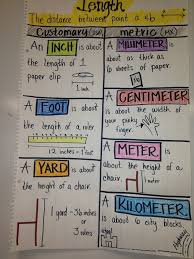 Length
The distance between point a & b
Customary
metric
An INCH is about
the length of 1
paper clip.
A MILLIMETER is
about as thick as
6 sheets of paper.
A FOOT is about
the length of a ruler
12 inches = 1 foot
A CENTIMETER is
about the width of
your pinky
finger.
A METER is
about the
height of a chair.
1 meter
A YARD is about
the height of a chair.
1 yard = 36 inches
or
3
A KILOMETER is
about 6 city blocks.